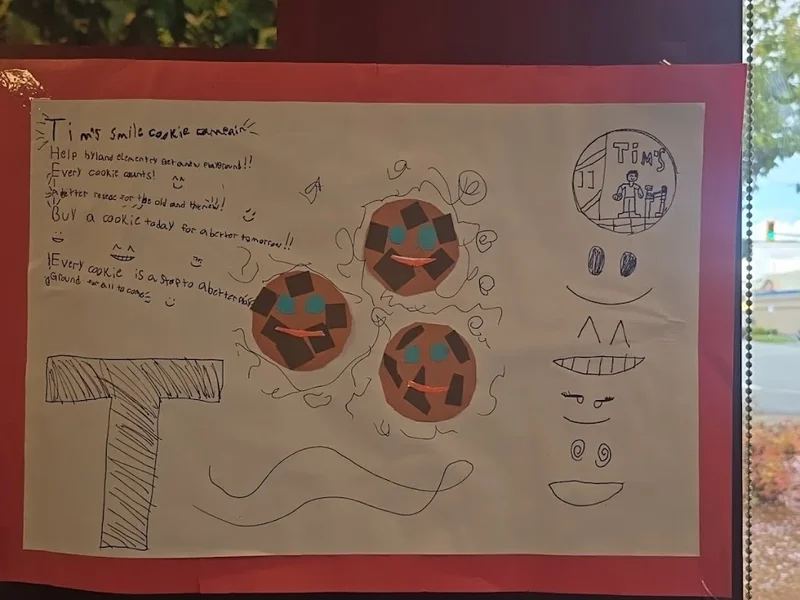 Tim's smile cookie
Help byland elementry get a new playground!!
Every cookie counts!
A better for the old and the new!!
Buy a cookie today for a better tomorrow!!
Every cookie is a stop to a better play
Ground for all to come
TiM'S
T